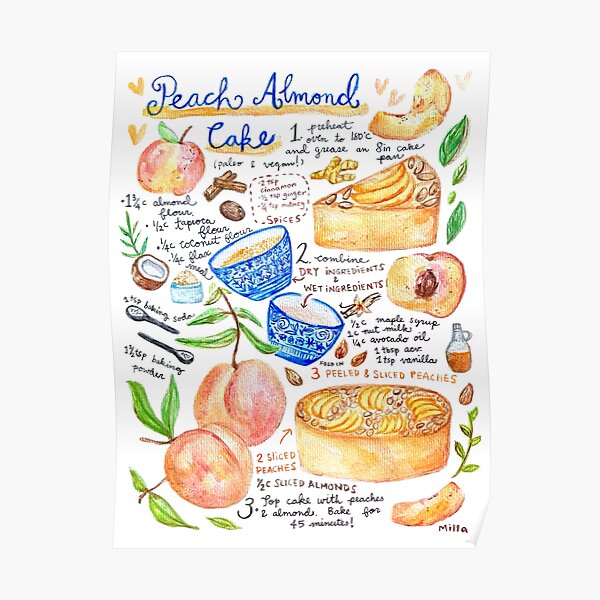 Peach Almond
Cake
(paleo & vegan!)
1. preheat
oven to 180°c
and grease an 8in cake
pan
• 1 3/4c almond
flour
• 1/2c tapioca
flour
• 1/4c coconut flour
• 1/4c flax
meal
• 2 tsp
cinnamon
• 1/2 tsp ginger
• 1/4 tsp nutmeg
- SPICES -
2. combine
DRY INGREDIENTS
&
WET INGREDIENTS
baking soda
baking
powder
1/2c maple syrup
1c nut milk
1/4c avocado oil
1 tbsp acv
1 tsp vanilla
FOLD IN
3 PEELED & SLICED PEACHES
2 SLICED
PEACHES
1/2c SLICED ALMONDS
3. Top cake with peaches
& almond. Bake for
45 minutes!
Milla